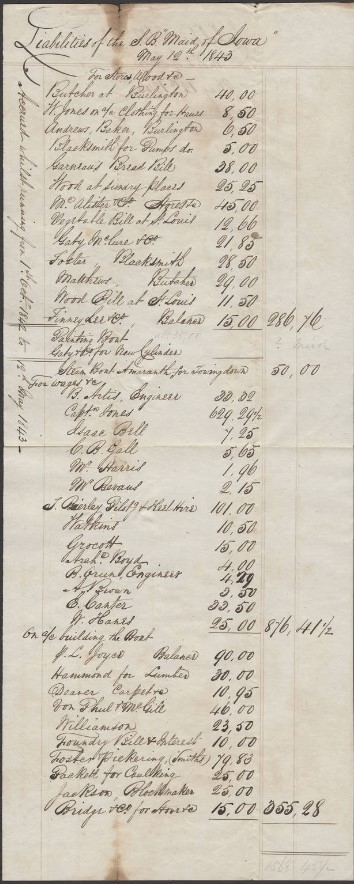 Liabilities of the S.B. "Maid of Iowa"
May 12th 1843
For Stores Wood &c —
Butcher at Burlington 40,00
W. Jones on a/c Clothing for 8,50
Andrews, Baker, Burlington 6,50
Blacksmith for Pumps do. 5.00
Garneaus Bread Bill 38.00
Wood at sundry places 25,25
McAlister & Co Stores &c 45,00
Vegetable Bill at St Louis 12,66
Gaty McCune & Co 21,85
Foster, Blacksmith 28,50
Matthews, Butcher 29,00
Wood Bill at St Louis 11,50
Finney Lee & Co, Balance 15,00 286,76
Painting Boat
Gaty & Co for New Cylinder
Steam Boat Amaranth for Towing down 50,00
For wages &c
B. Artis, Engineer 32.02
Captn Jones 629,29½
Isaac Bell 7,25
C. B. Gall 5,65
Wm. Harris 1,96
Wm Bevans 2,15
J. Bierley Pilotg & Keel Hire 101,00
Hawkins 10,50
Grocott 15,00
Archd. Boyd 4,00
B. Green, Engineer 4,29
Brown 3,50
E. Canter 33,50
W. Hanes 25,00 876,41½
On a/c building the Boat
J. L. Joyce Balance 90,00
Hammond for Lumber 30,00
Deaver Carpet &c 10,95
Von Phul & McGill 46,00
Williamson 23,50
Foundry Bill & Interest 10,00
Foster Pickering (Smiths) 79,83
Packett for Caulking 25,00
Jackson, Blockmaker 25,00
Bridge & Co. for Stove &c 15,00 355,28
1568,45½
Accrued whilst running from 1st Octr. 1842 to 12th May 1843 —